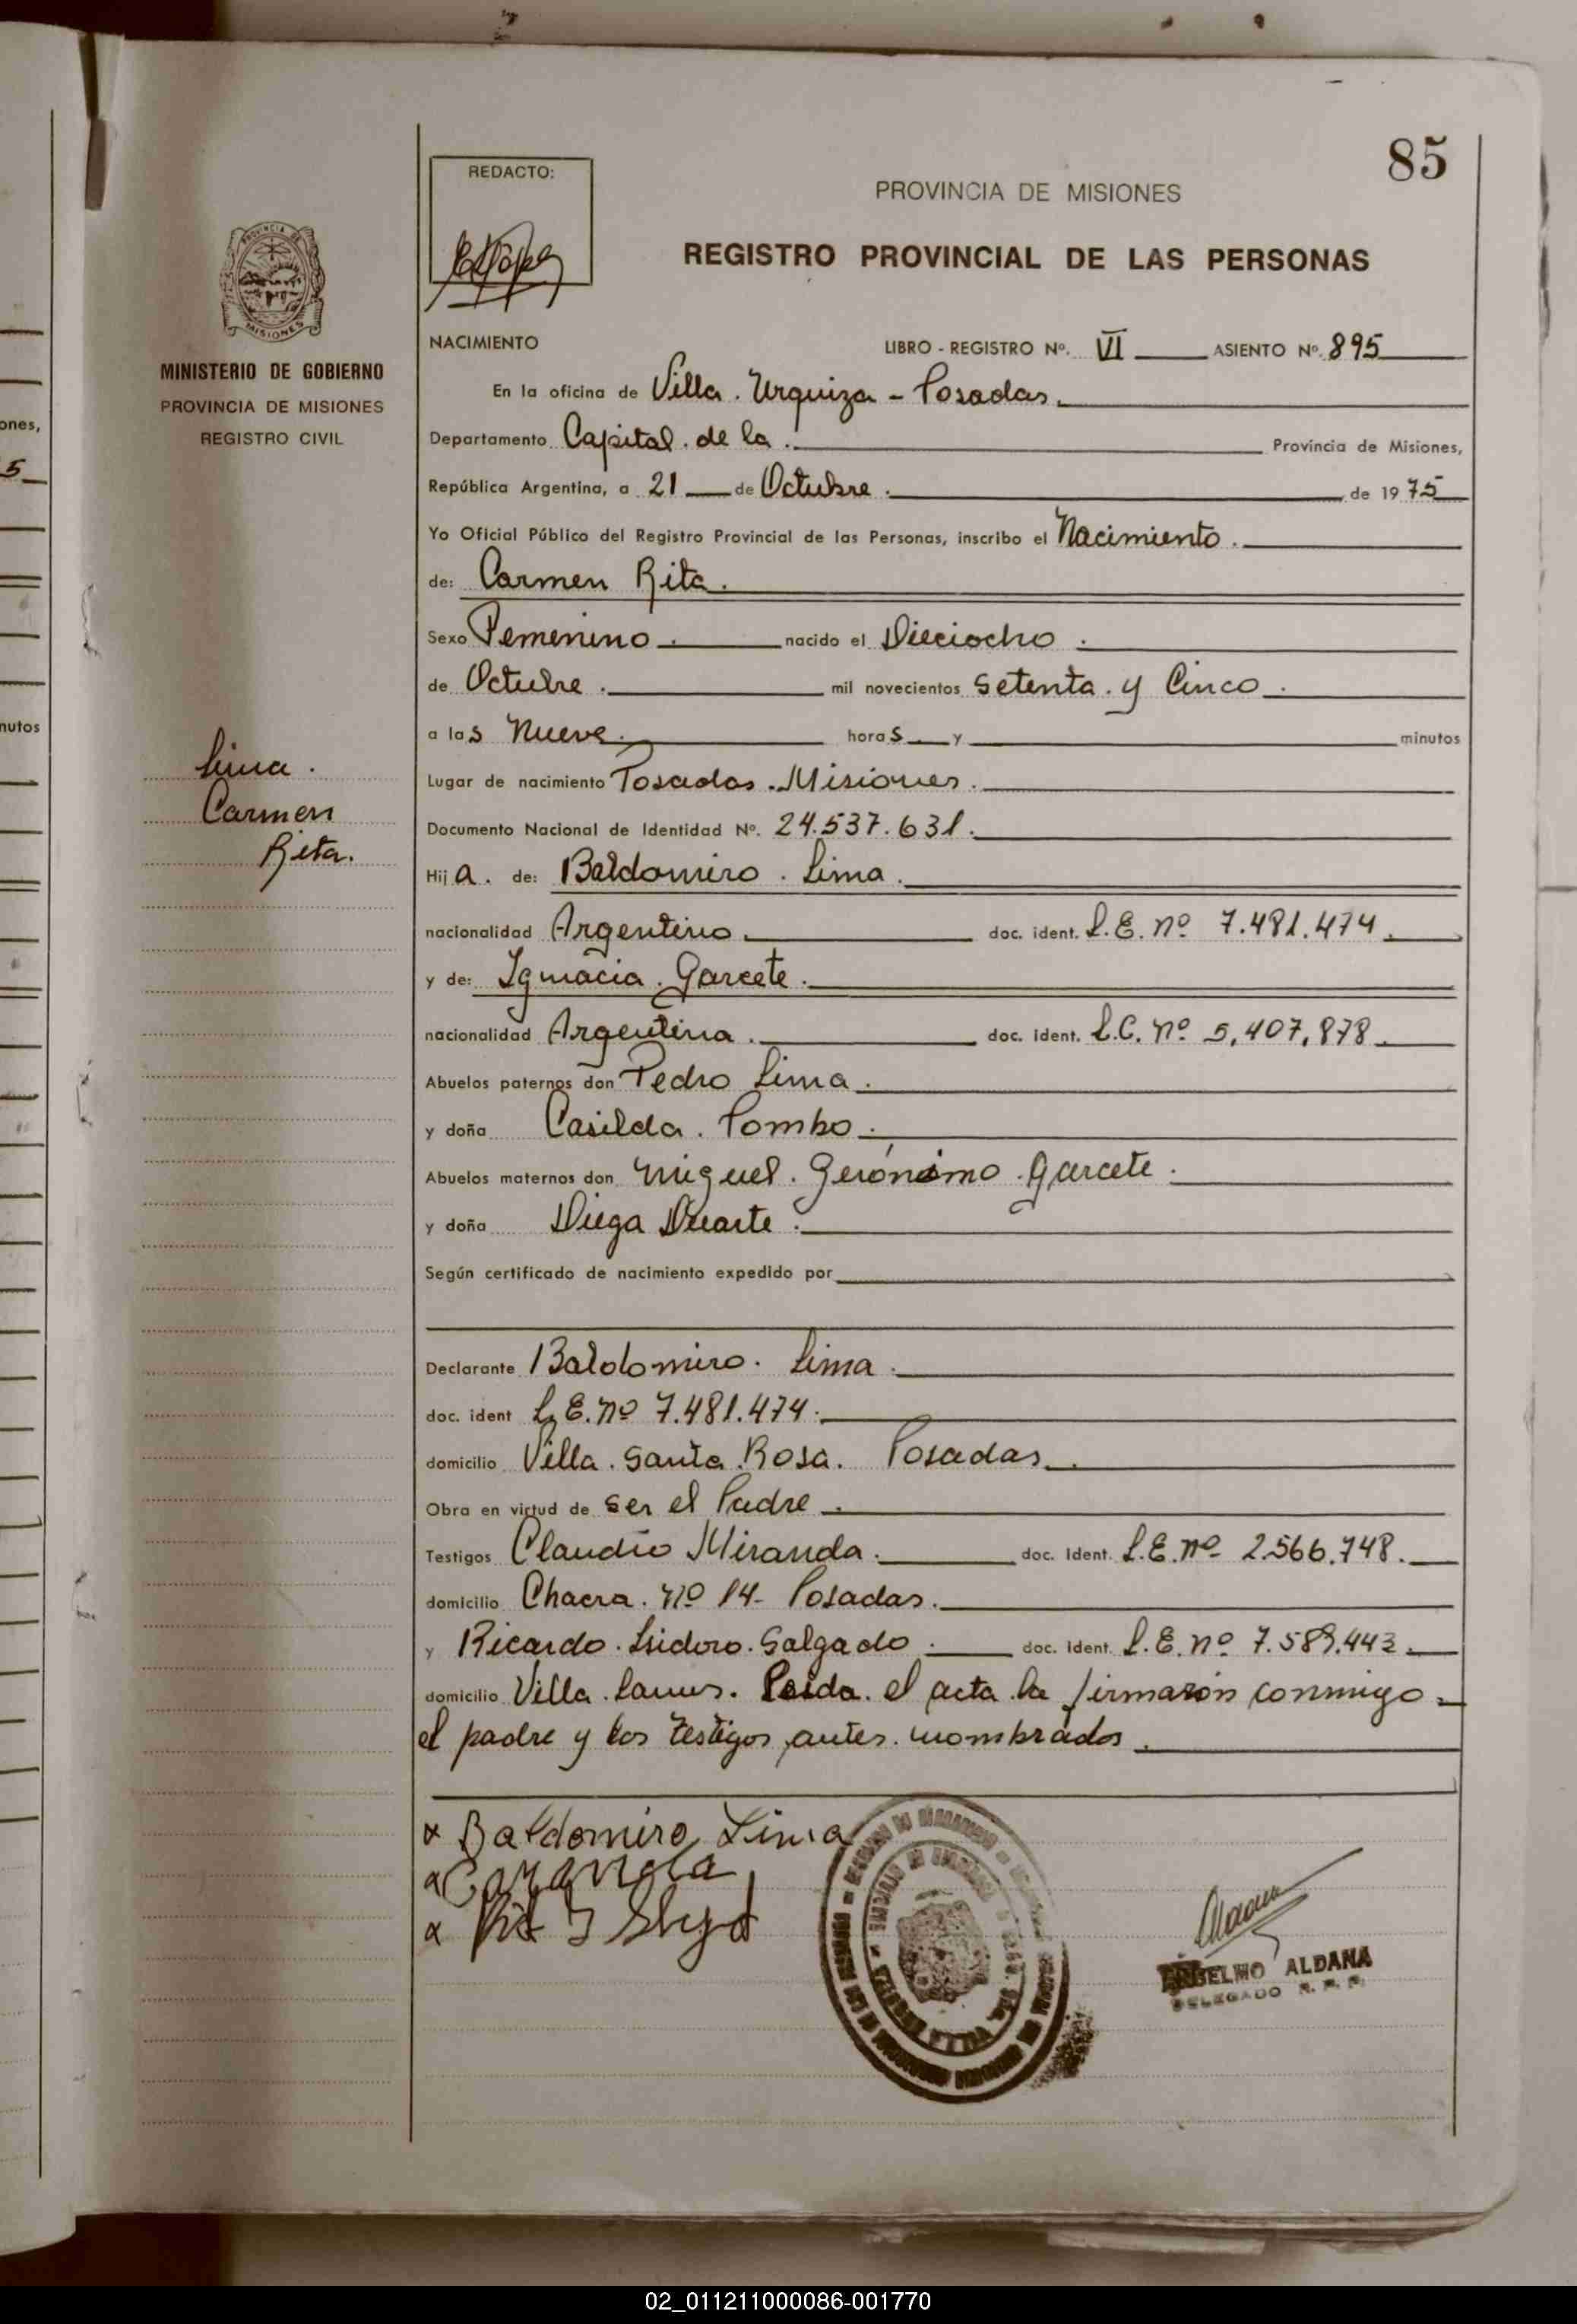 85
REDACTO:
PROVINCIA DE MISIONES
REGISTRO PROVINCIAL DE LAS PERSONAS
PROVINCIA DE
MISIONES
MINISTERIO DE GOBIERNO
PROVINCIA DE MISIONES
REGISTRO CIVIL
NACIMIENTO LIBRO - REGISTRO Nº. VI ASIENTO Nº. 895
En la oficina de Villa. Urquiza - Posadas.
Departamento Capital. de la. Provincia de Misiones,
República Argentina, a 21 de Octubre. de 1975
Yo Oficial Público del Registro Provincial de las Personas, inscribo el Nacimiento.
de: Carmen Rita.
Sexo Femenino. nacido el Dieciocho.
de Octubre. mil novecientos setenta. y Cinco.
a las Nueve. horas y minutos
Lugar de nacimiento Posadas. Misiones.
Documento Nacional de Identidad Nº. 24.537.631.
Hija. de: Baldomiro. Lima.
nacionalidad Argentino. doc. ident. L.E. nº 7.481.474.
y de: Ignacia. Garcete.
nacionalidad Argentina. doc. ident. L.C. nº 5,407,878.
Abuelos paternos don Pedro Lima.
y doña Casilda. Pombo.
Abuelos maternos don Miguel. Gerónimo. Garcete.
y doña Diega Duarte.
Según certificado de nacimiento expedido por
Declarante Baldomiro. Lima.
doc. ident L.E. nº 7.481.474.
domicilio Villa. Santa. Rosa. Posadas.
Obra en virtud de ser el Padre.
Testigos Claudio Miranda. doc. Ident. L.E. nº 2.566.748.
domicilio Chacra. nº 14- Posadas.
y Ricardo. Isidoro. Salgado. doc. ident. L.E. nº 7.589.443.
domicilio Villa. Lanus. Leída. el acta la firmaron conmigo
el padre y los testigos antes. nombrados.
Lima.
Carmen
Rita.
Baldomiro Lima
ANSELMO ALDANA
DELEGADO R. P. P.
ones,
5
nutos
02_011211000086-001770